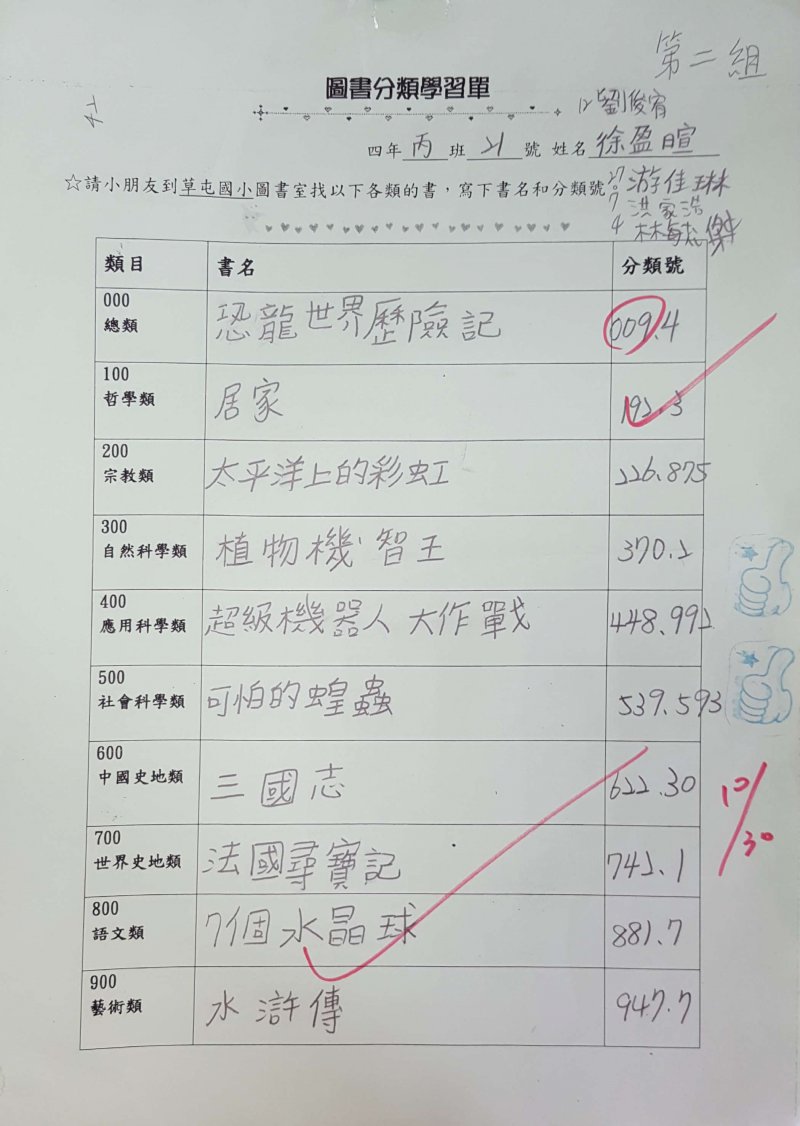 第二組
圖書分類學習單
12 劉俊宥
四年丙班21號 姓名徐盈暄
☆請小朋友到草屯國小圖書室找以下各類的書,寫下書名和分類號。
27 游佳琳
7 洪家浩
4 林毓傑
類目 書名 分類號
000
總類 恐龍世界歷險記 009.4
100
哲學類 居家 192.3
200
宗教類 太平洋上的彩虹 226.875
300
自然科學類 植物機智王 370.2
400
應用科學類 超級機器人大作戰 448.992
500
社會科學類 可怕的蝗蟲 539.593
600
中國史地類 三國志 622.30
10/30
700
世界史地類 法國尋寶記 742.1
800
語文類 7個水晶球 881.7
900
藝術類 水滸傳 947.7